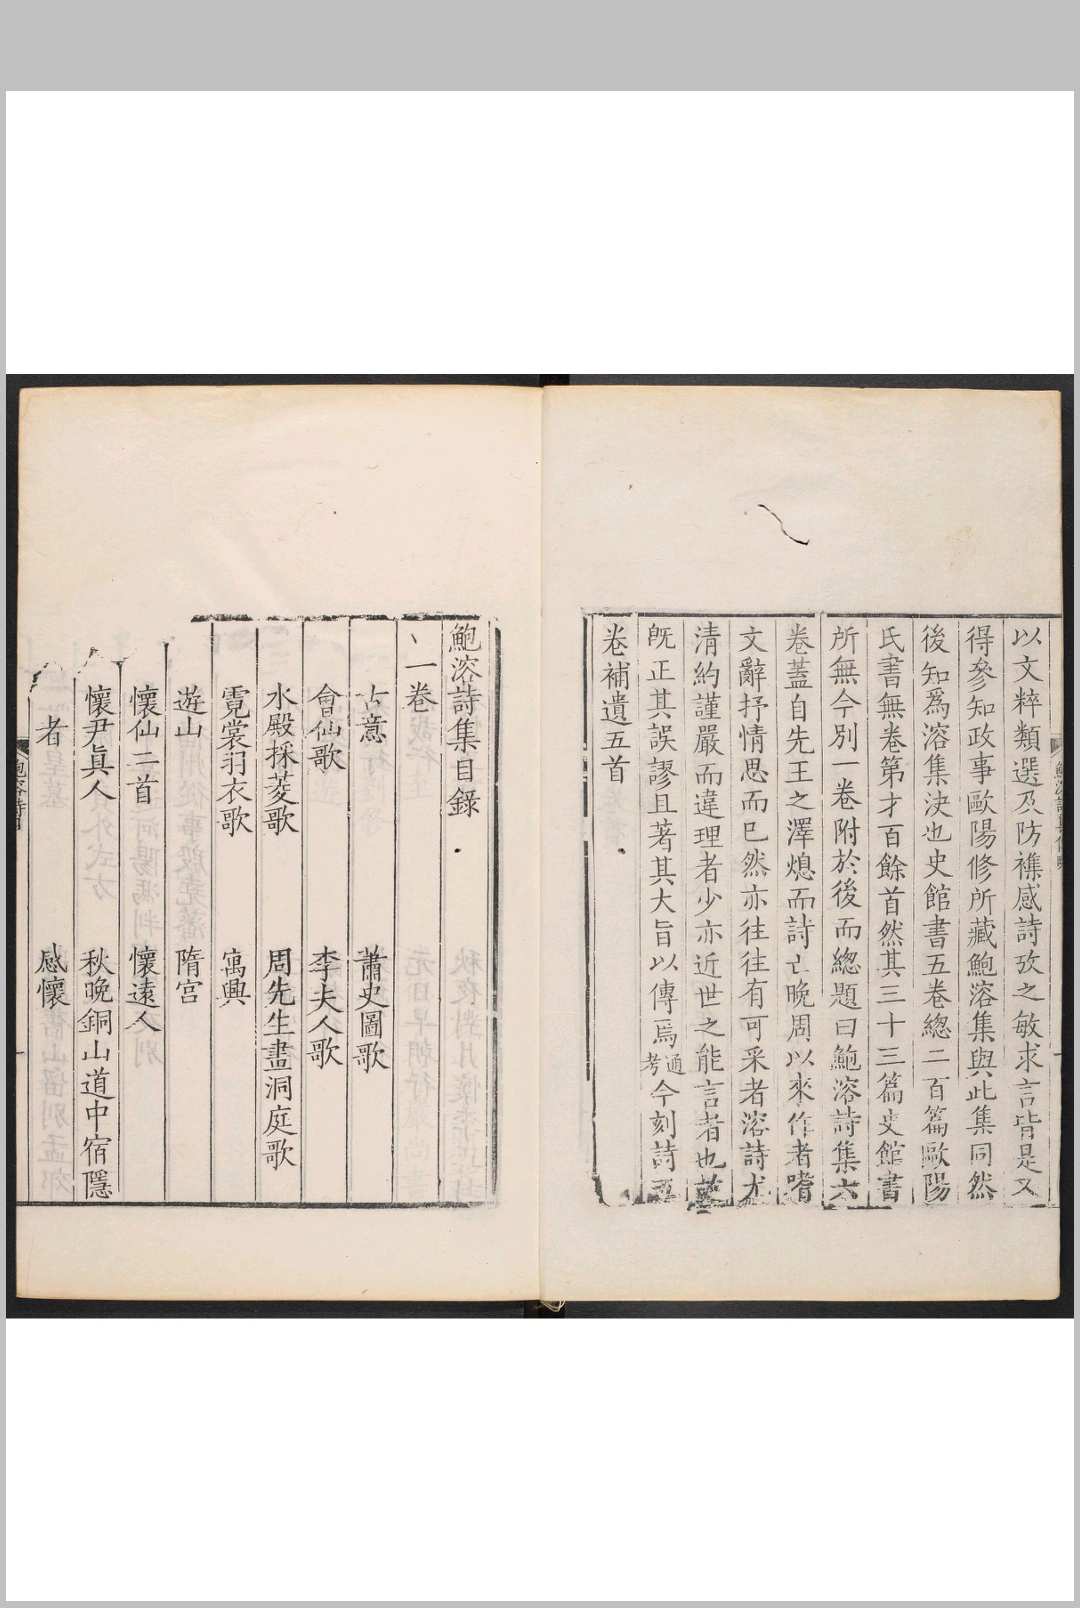 以文粹類選及防襍感詩攷之敏求言皆是又
得參知政事歐陽修所藏鮑溶集與此集同然
後知爲溶集決也史館書五卷總二百篇歐陽
氏書無卷第才百餘首然其三十三篇史館書
所無今別一卷附於後而總題曰鮑溶詩集六
卷蓋自先王之澤熄而詩亡晚周以來作者嗜
文辭抒情思而已然亦往往有可采者溶詩尤
清約謹嚴而違理者少亦近世之能言者也
旣正其誤謬且著其大旨以傳焉通考今刻詩五
卷補遺五首
鮑溶詩集目錄
一卷
古意
蕭史圖歌
會仙歌
李夫人歌
水殿採菱歌
周先生畫洞庭歌
霓裳羽衣歌
寓興
遊山
隋宮
懷仙二首
懷遠人
懷尹眞人
秋晚銅山道中宿隱
者
感懷